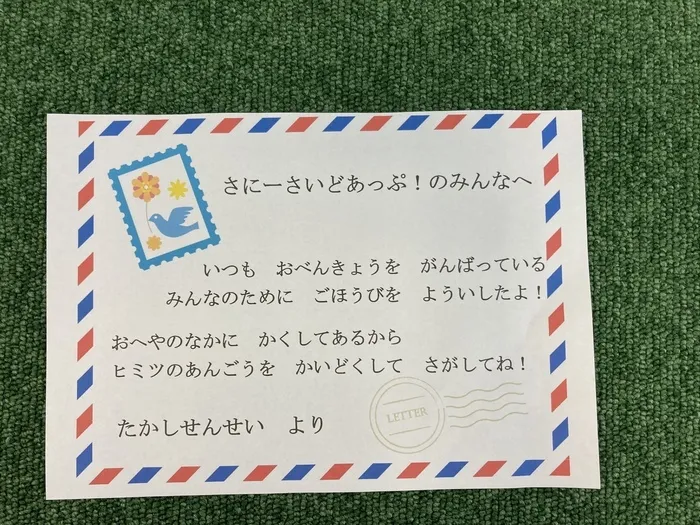 さにーさいどあっぷ！のみんなへ
いつも　おべんきょうを　がんばっている
みんなのために　ごほうびを　よういしたよ！
おへやのなかに　かくしてあるから
ヒミツのあんごうを　かいどくして　さがしてね！
LETTER
たかしせんせい　より